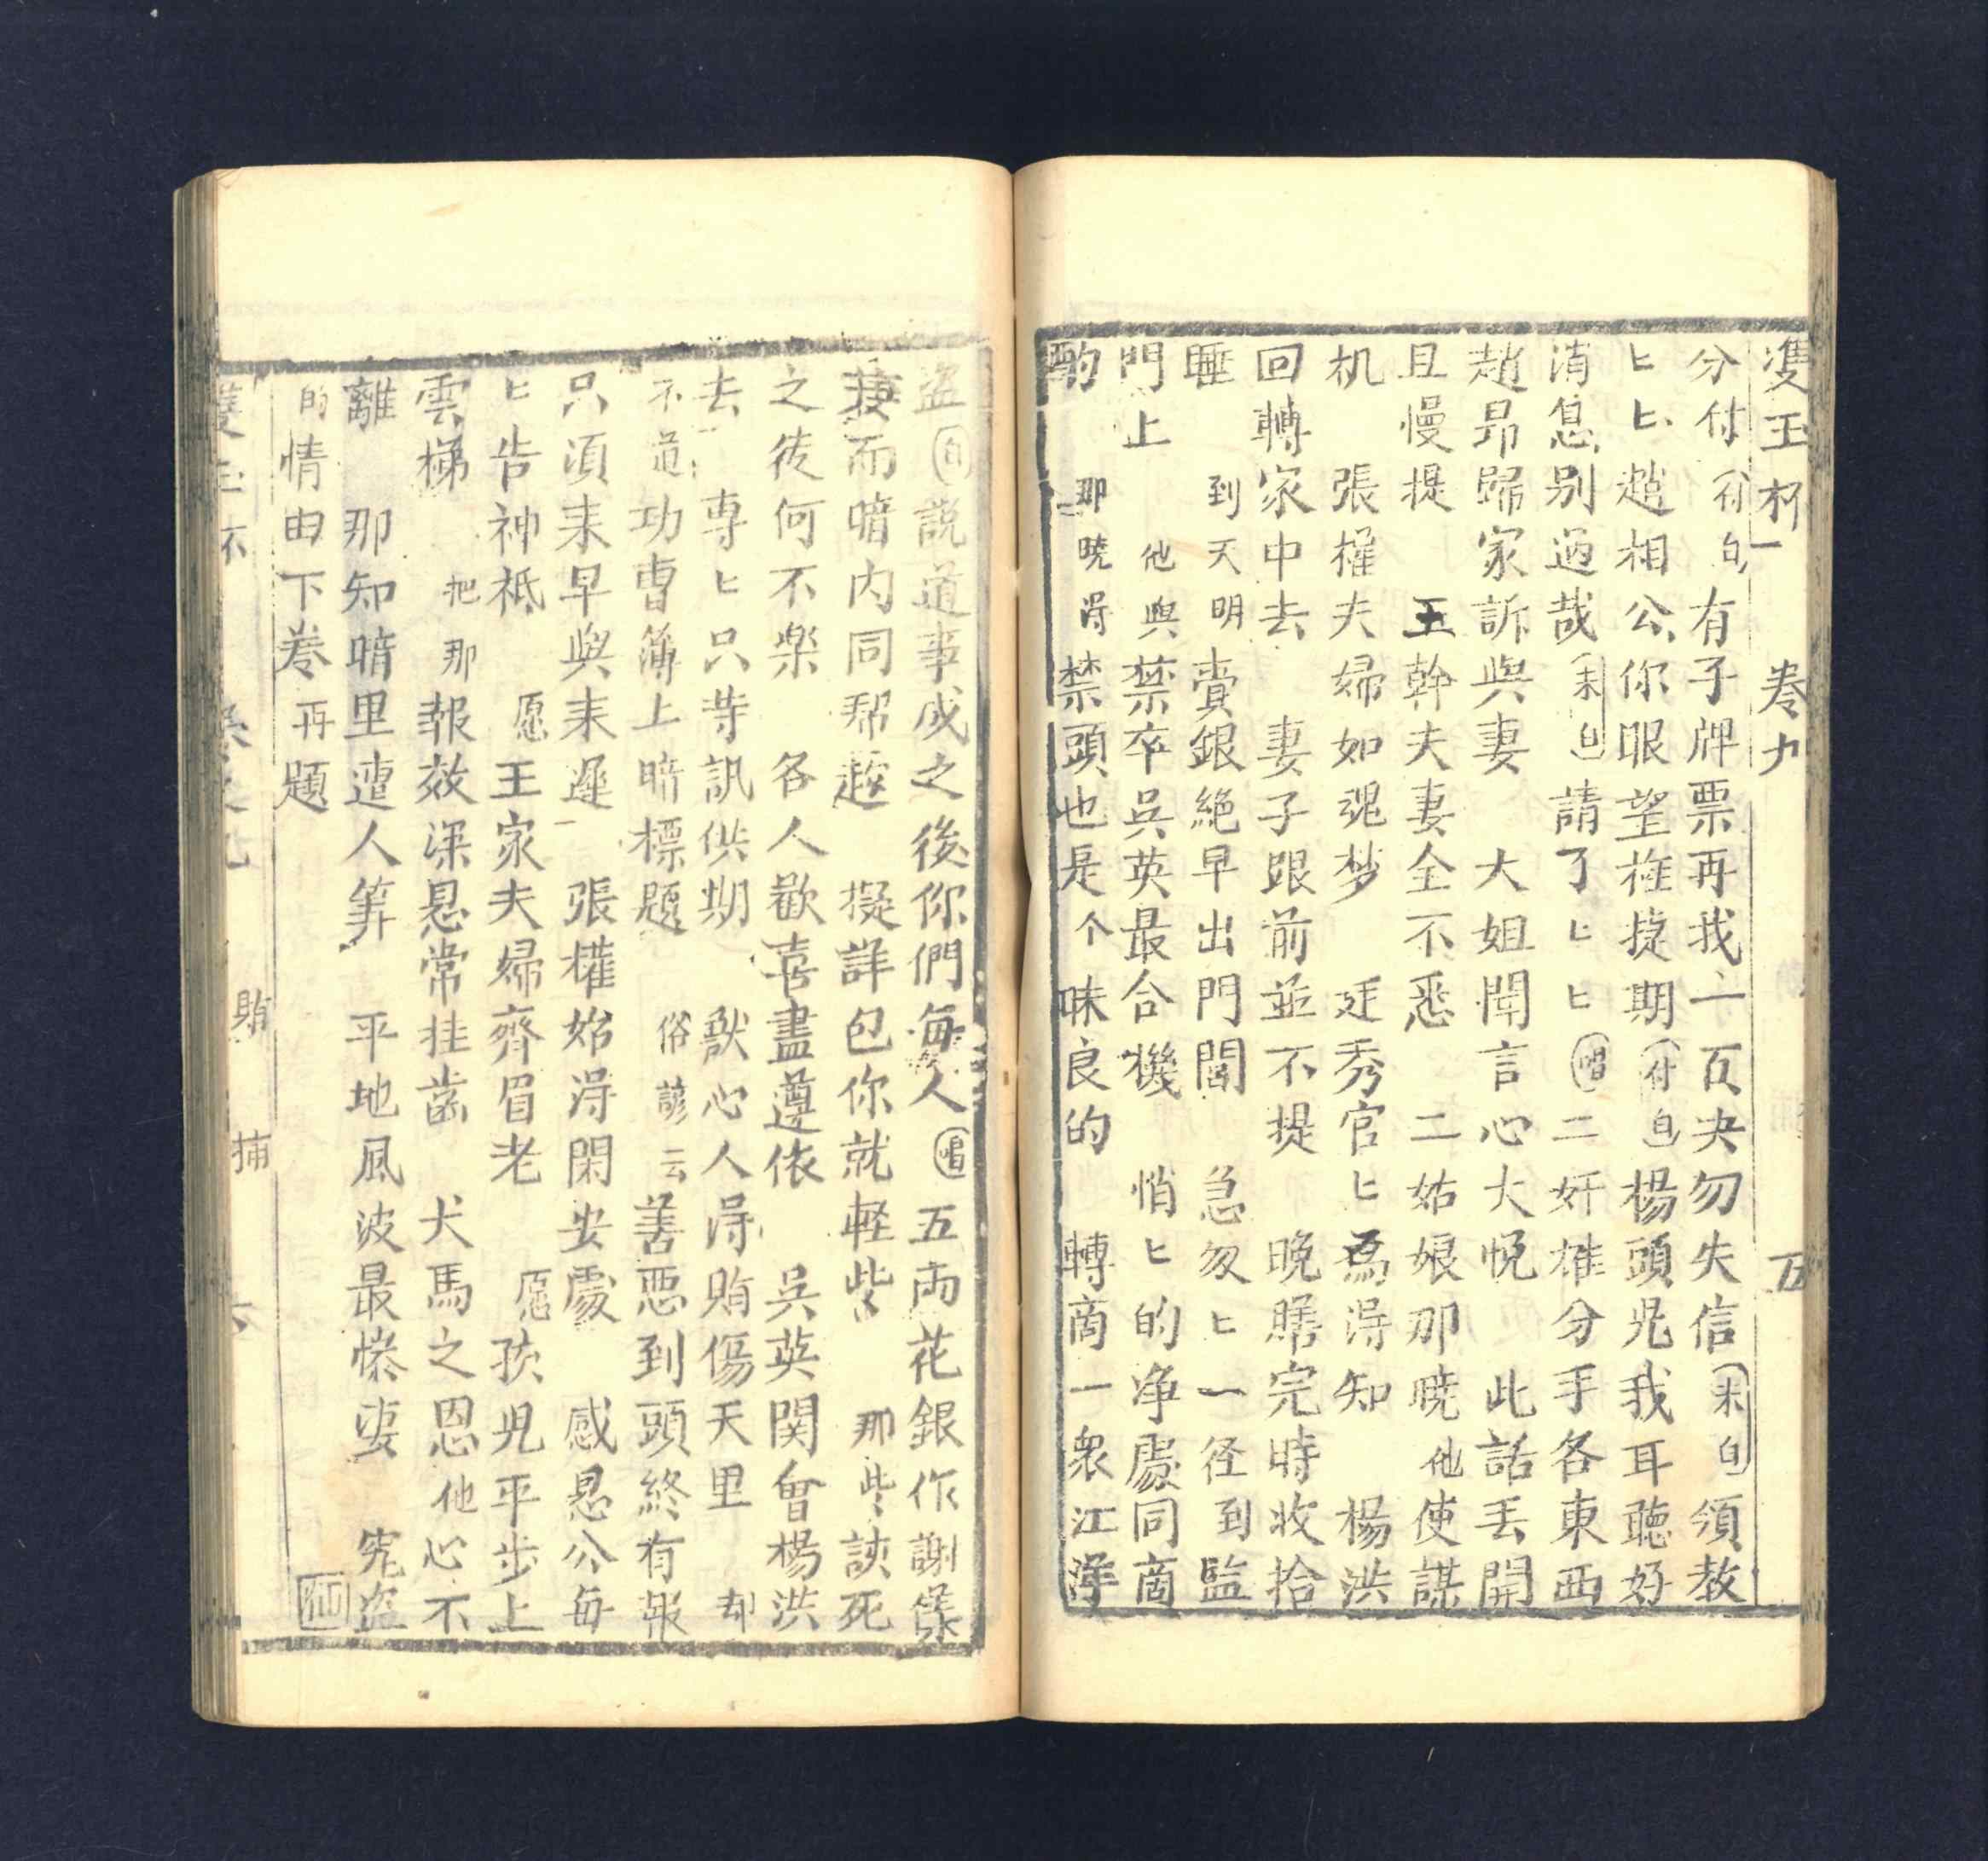 雙玉杯 卷九 五
分付(付白)有子牌票再我一百央勿失信(末白)領教
匕匕趙相公你眼望旌捷期(付白)楊頭児我耳聴好
消息别过哉(末白)請了匕匕(唱)二奸雄分手各東西
趙昂歸家訴與妻 大姐聞言心大悦 此話丢開
且慢提 王幹夫妻全不悉 二姑娘那曉他使謀
机 張權夫婦如魂梦 廷秀官匕為淂知 楊洪
回轉家中去 妻子跟前並不提 晚膳完時收拾
睡 到天明賫銀絶早出門閭 急匆匕一径到監
門上 他與禁卒吳英最合機 悄匕的净處同商
酌 那曉淂禁頭也是个昧良的 轉商一衆江洋
盗(白)説道事成之後你們每人(唱)五両花銀作謝儀
接而暗内同帮趂 擬詳包你就軽些 那些該死
之徒何不樂 各人歡喜盡遵依 吳英関會楊洪
去 專匕只等訊供期 獣心人淂賄傷天里 却
不道功曹簿上暗標題 俗諺云善惡到頭終有報
只須来早與来遲 張權始淂閑安處 感恩公每
匕告神祇 愿王家夫婦齊眉老 愿孩児平步上
雲梯 把那報效深恩常挂齒 犬馬之恩他心不
離 那知暗里遭人筭 平地風波最慘凄 寃盗
的情由下卷再題
雙玉杯 卷之九 賄捕 六